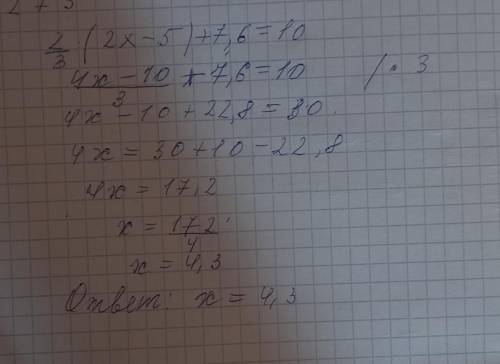 2/3 (2x-5)+7,6=10
(4x-10)/3 +7,6=10 /·3
4x-10+22,8=30.
4x=30+10-22,8
4x=17,2
x=17,2/4
x=4,3
Ответ: x=4,3